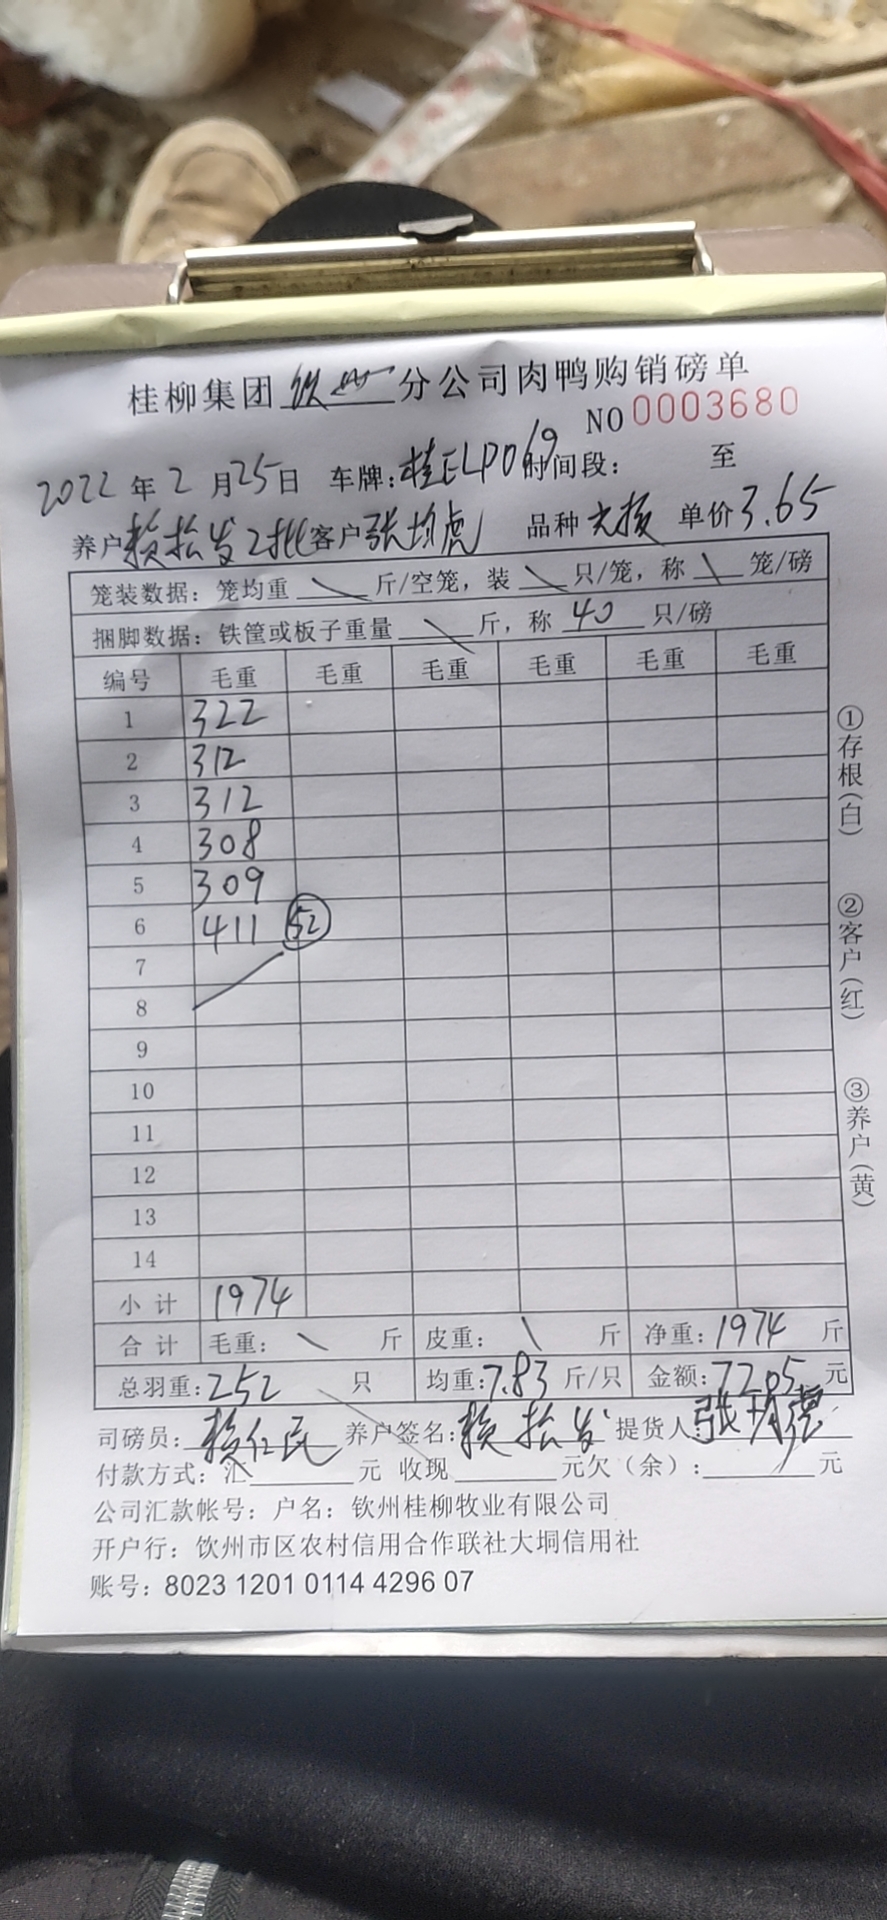 桂柳集团钦州分公司肉鸭购销磅单
NO 0003680
2022年2月25日 车牌:桂ELP019时间段: 至
养户赖松发2批客户张均虎 品种 单价3.65
笼装数据:笼均重 斤/空笼,装 只/笼,称 笼/磅
捆脚数据:铁筐或板子重量 斤,称 40 只/磅
编号 毛重 毛重 毛重 毛重 毛重 毛重
1 322
2 312
3 312
4 308
5 309
6 411 52
7
8
9
10
11
12
13
14
小计 1974
合计 毛重: 斤 皮重: 斤 净重:1974 斤
总羽重:252 只 均重:7.83 斤/只 金额:7205 元
司磅员:赖仁民 养户签名:赖松发 提货人
付款方式:汇 元 收现 元欠(余): 元
公司汇款帐号:户名:钦州桂柳牧业有限公司
开户行:钦州市区农村信用合作联社大垌信用社
账号:8023 1201 0114 4296 07
①存根(白)
②客户(红)
③养户(黄)